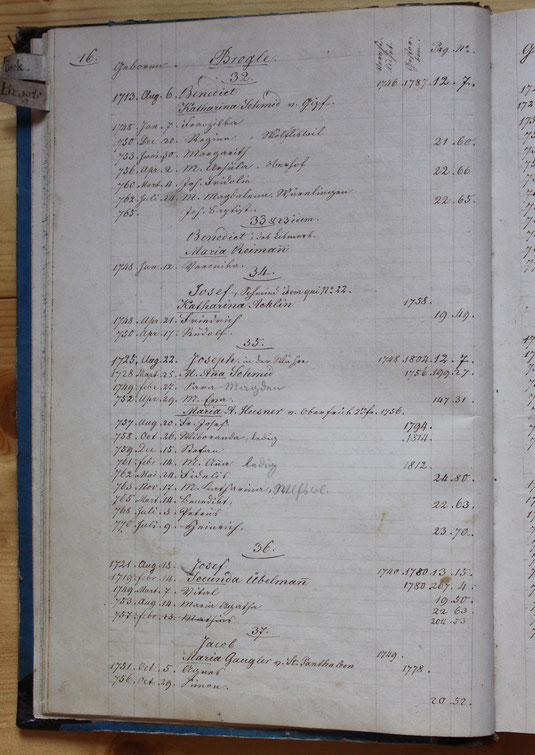 16.
Geboren Brogle. Pag. No.
32.
1713. Aug. 6. Benedict 1746. 1787. 12. 7.
Katharina Schmid v. Gipf.
1748. Jan. 7. Franziska
750. Dec. 20. Regina, Wölfliswil 21. 60.
753. Juni. 30. Margarith
756. Apr. 2. M. Ursula. Oberhof 22. 66
760. Mart. 4. Jos. Fridolin
762. Juli. 21. M. Magdalena. Würenlingen 22. 65.
765. Jos. Baptist.
33
Benedict,
Maria Reimañ
1748. Jan. 12. Veronika.
34.
Josef, Schmied idem qui No. 22.
Katharina Acklin 1758.
1748. Apr. 21. Friedrich 19. 49.
750. Apr. 17. Rudolf.
35.
1725. Aug. 22. Joseph, in der 1748. 1804. 12. 7.
1728. Mart. 25. M. Ana Schmid 1756. 199. 27.
1749. febr. 27. Sara Magden
752. Apr. 29. M. Eva 147. 31
Maria A. Heusner v. 1756.
757. Aug. 20. Fr. Josef 1794.
758. Oct. 26. Wiboranda, ledig 1814.
759. Dec. 15. Stefan
761. febr. 14. M. Ana ledig 1812.
762. Mai. 24. Fidelis 24. 80.
763. Nov. 17. M. Katharina,
765. Mart. 14. Benedikt. 22. 63.
768. Juli. 3. Petrus
770. Juli. 9. Heinrich. 23. 70.
36.
1721. Aug. 13. Josef 1740. 1780. 13. 15.
1719. febr. 14. Secunda Übelmañ 1780. 267. 4.
1749. Mart. 7. Vital 19. 50.
753. Aug. 14. Maria Agatha 22 63.
757. febr. 23. Mathias 204. 53
37.
Jacob 1749.
Maria Gangler v. St. Panthaleon
1751. Oct. 5. Agnes 1778.
756. Oct. 29. Simon.
20. 52.